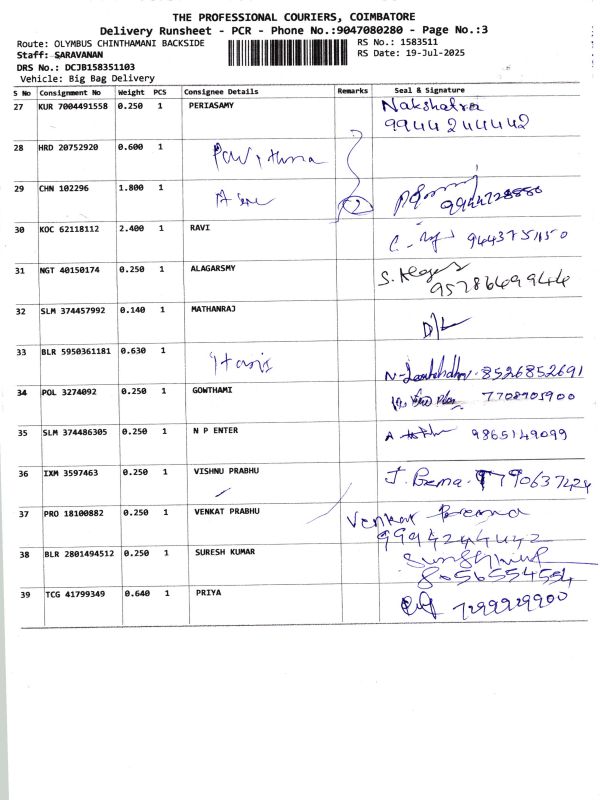 THE PROFESSIONAL COURIERS, COIMBATORE
Delivery Runsheet - PCR - Phone No.:9047080280 - Page No.:3
Route: OLYMBUS CHINTHAMANI BACKSIDE RS No.: 1583511
Staff: SARAVANAN RS Date: 19-Jul-2025
DRS No.: DCJB158351103
Vehicle: Big Bag Delivery
S No Consignment No Weight PCS Consignee Details Remarks Seal & Signature
27 KUR 7004491558 0.250 1 PERIASAMY Nakshatra
9944244442
28 HRD 20752920 0.600 1 Pavithma
29 CHN 102296 1.800 1
30 KOC 62118112 2.400 1 RAVI
31 NGT 40150174 0.250 1 ALAGARSMY
9578649944
32 SLM 374457992 0.140 1 MATHANRAJ
33 BLR 5950361181 0.630 1
8526852691
34 POL 3274092 0.250 1 GOWTHAMI 7708905900
35 SLM 374486305 0.250 1 N P ENTER 9865149099
36 IXM 3597463 0.250 1 VISHNU PRABHU J. Prema
37 PRO 18100882 0.250 1 VENKAT PRABHU Venkat Prema
9994244442
38 BLR 2801494512 0.250 1 SURESH KUMAR
8056554554
39 TCG 41799349 0.640 1 PRIYA 7299929900